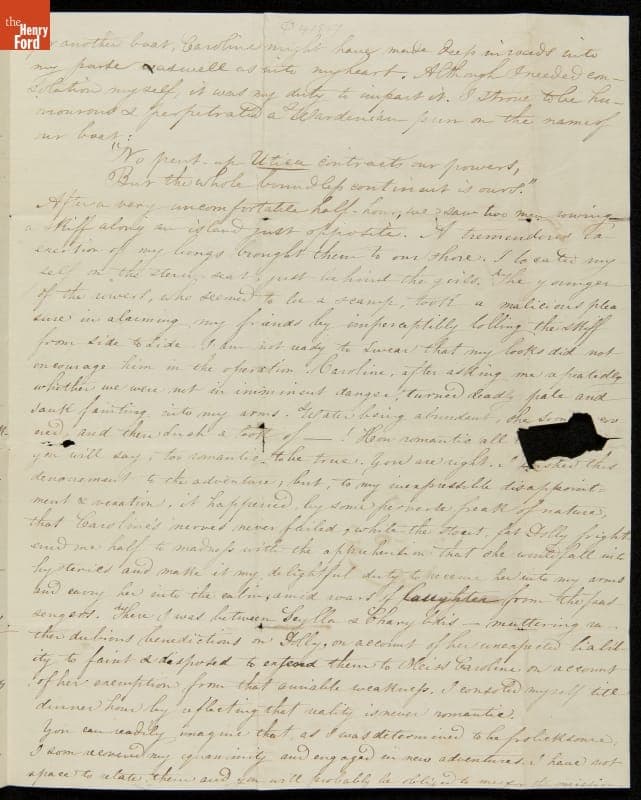 the
Henry
Ford
for another boat, Caroline might have made deep inroads into
my purse as well as into my heart. Although I needed con-
solation myself, it was my duty to impart it. I strove to be hu-
mourous & perpetrated a Wardenian pun on the name of
our boat:
"No pent-up Utica contracts our powers,
But the whole boundless continent is ours."
After a very uncomfortable half-hour, we saw two men rowing
a skiff along an island just opposite. A tremendous ex-
ertion of my lungs brought them to our shore. I located my
self on the stern seat just behind the girls. The younger
of the rowers, who seemed to be a scamp, took a malicious plea
sure in alarming my friends by imperceptibly lolling the skiff
from side to side. I am not ready to swear that my looks did not
encourage him in the operation. Caroline, after asking me repeatedly
whether we were not in imminent danger, turned deadly pale and
sank fainting into my arms. Water being abundant, she soon
and then such a look of — ! How romantic all
you will say; too romantic to be true. You are right. I wished this
denouement to the adventure; but, to my inexpressible disappoint-
ment & vexation, it happened, by some perverse freak of nature,
that Caroline's nerves never failed, while the stout, fat Dolly fright
ened me half to madness with the apprehension that she would fall into
hysterics and make it my delightful duty to receive her into my arms
and carry her into the cabin, amid roars of laughter from the pas
sengers. There I was between Scylla & Charybdis — muttering ra-
ther dubious benedictions on Dolly, on account of her unexpected liabil-
ity to faint & disposed to extend them to Miss Caroline on account
of her exemption from that amiable weakness. I consoled myself till
dinner hour by reflecting that reality is never romantic.
You can readily imagine that, as I was determined to be frolicksome,
I soon recovered my equanimity and engaged in new adventures. I have not
space to relate them and you will probably be obliged to me for the